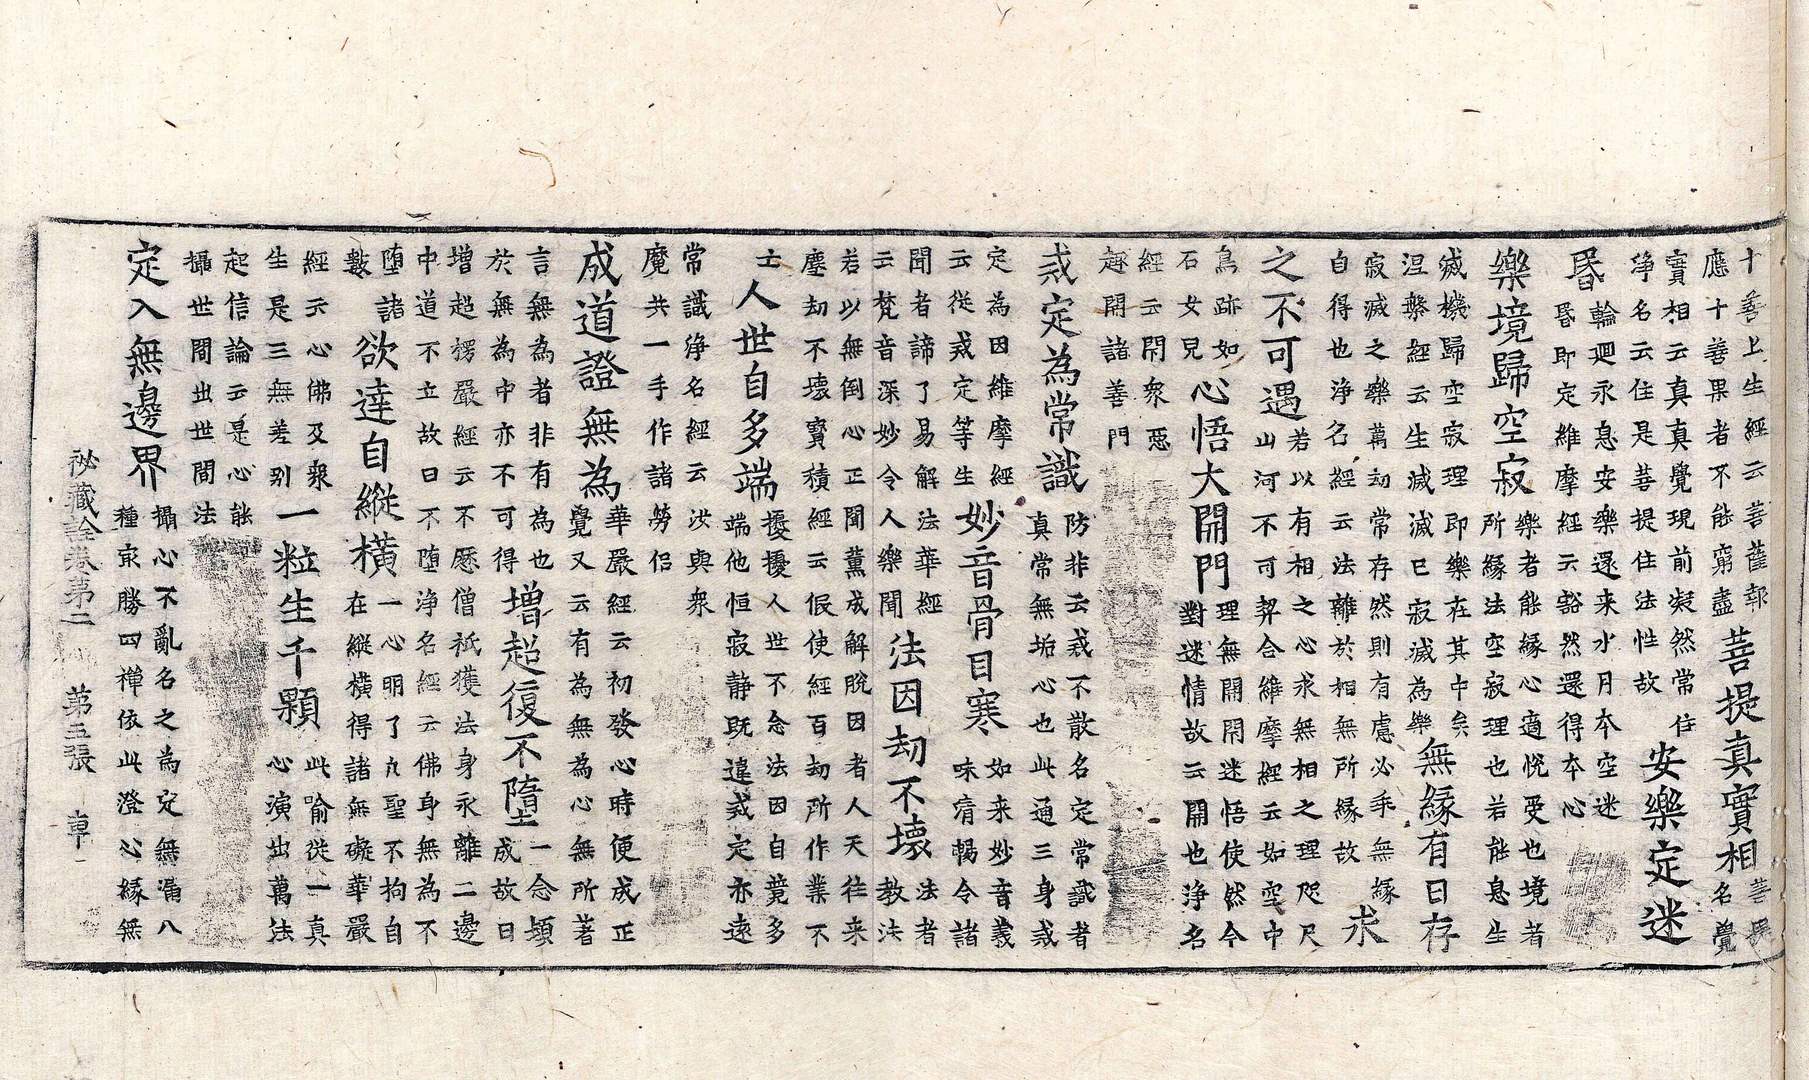 十善上生經云菩薩報
應十善果者不能窮盡
菩提真實相
菩提
名覺
實相云真真覺現前凝然常住
淨名云住是菩提住法性故
安樂定迷
昏
輪迴永息安樂還来水月本空迷
昏即定維摩經云豁然還得本心
樂境歸空寂
樂者能緣心適悅受也境者
所緣法空寂理也若能息生
滅機歸空寂理即樂在其中矣
涅槃經云生滅滅已寂滅為樂
無緣有日存
寂滅之樂萬劫常存然則有慮必乖無緣
自得也淨名經云法離於相無所緣故
求
之不可遇
若以有相之心求無相之理咫尺
山河不可契合維摩經云如空中
鳥跡如
石女兒
心悟大開門
理無開閉迷悟使然令
對迷情故云開也淨名
經云閉衆惡
趣開諸善門
戒定為常識
防非云戒不散名定常識者
真常無垢心也此通三身戒
定為因維摩經
云從戒定等生
妙音骨目寒
如来妙音義
味清暢令諸
聞者諦了易解法華經
云梵音深妙令人樂聞
法因劫不壞
法者
教法
若以無倒心正聞薰成解脫因者人天往来
塵劫不壞寶積經云假使經百劫所作業不
亡
人世自多端
擾擾人世不念法因自竟多
端他恒寂靜既違戒定亦遠
常識淨名經云汝與衆
魔共一手作諸勞侶
成道證無為
華嚴經云初發心時便成正
覺又云有為無為心無所著
言無為者非有為也
於無為中亦不可得
增超復不墮
一念頓
成故曰
增超楞嚴經云不歷僧祇獲法身永離二邊
中道不立故曰不墮淨名經云佛身無為不
墮諸
數
欲達自縱橫
一心明了凡聖不拘自
在縱橫得諸無礙華嚴
經云心佛及衆
生是三無差別
一粒生千顆
此喻從一真
心演出萬法
起信論云是心能
攝世間出世間法
定入無邊界
攝心不亂名之為定無漏八
種最勝四禪依此澄心緣無
秘藏詮卷第二 第五張